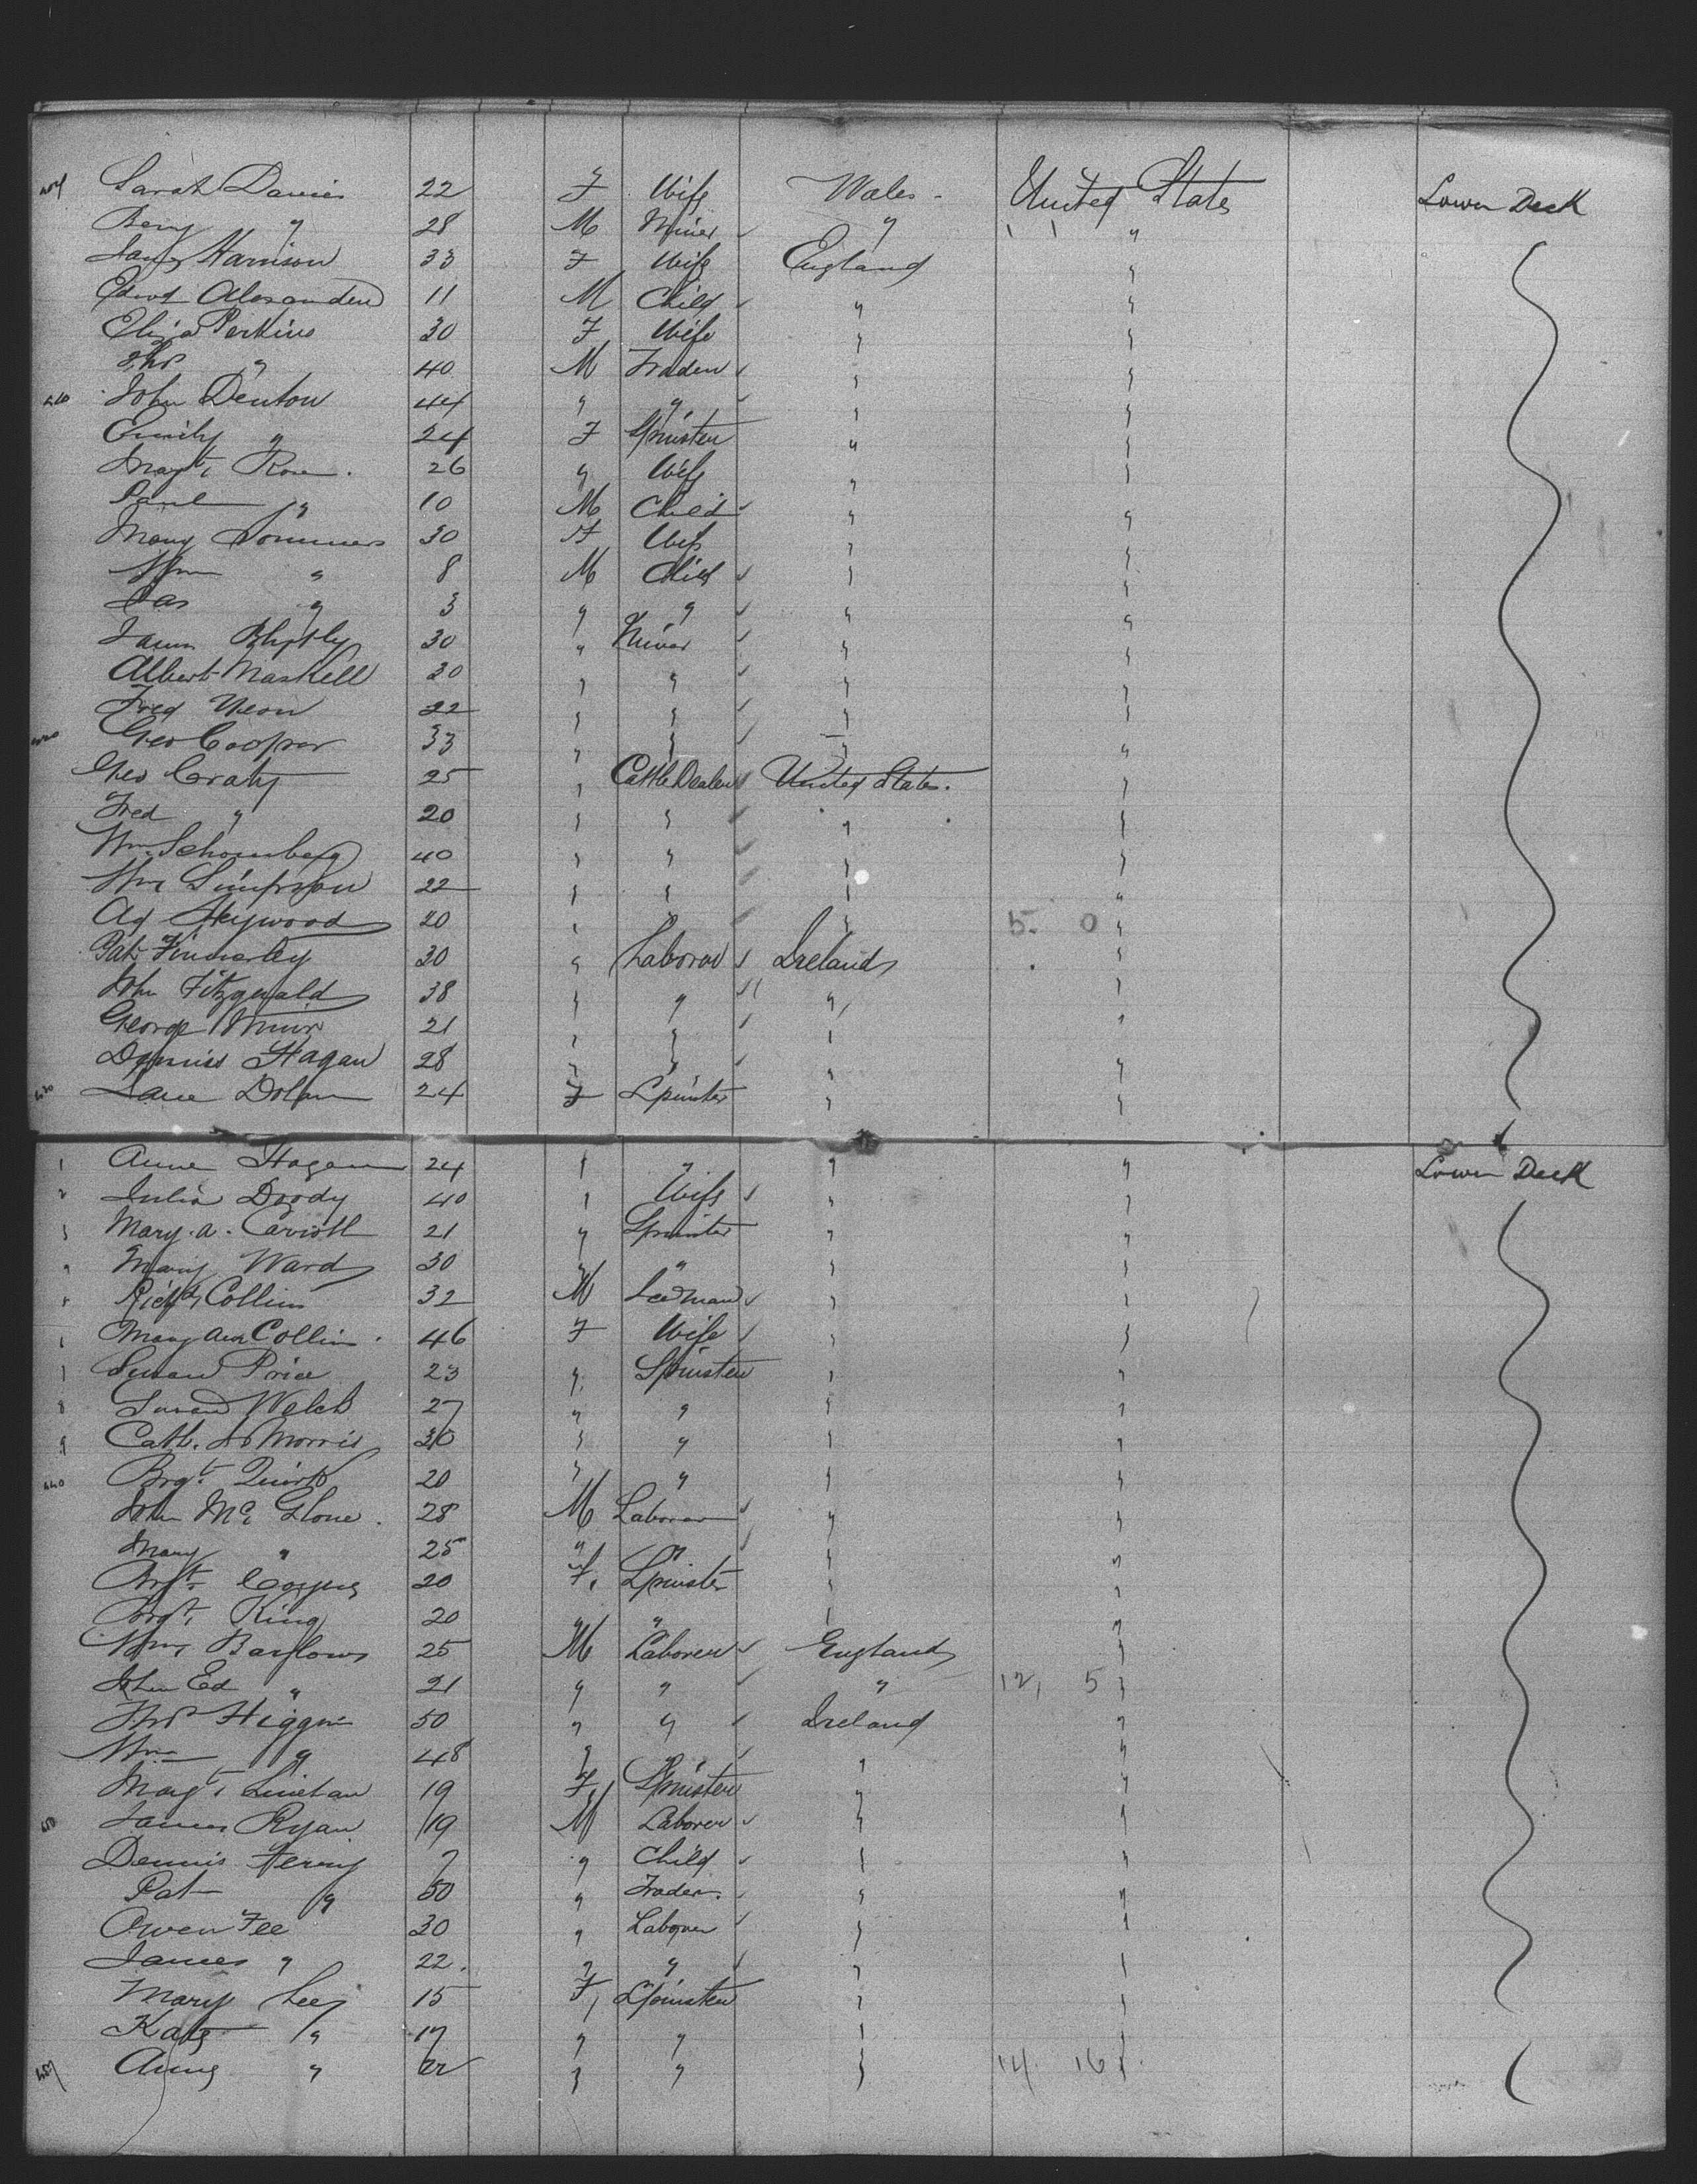 404 Sarah Davies 22 F Wife Wales - United States Lower Deck
Benj " 28 M Miner " "
Harrison 33 F Wife England "
Edwd Alexander 11 M Child " "
Eliza Perkins 30 F Wife " "
Thos " 40 M Trader " "
410 John Denton 44 " " " "
Emily " 24 F Spinster " "
Magt. Rose. 26 " Wife " "
Paul " 10 M Child " "
Mary Sommers 30 F Wife " "
Wm " 8 M Child " "
Jas " 3 " " " "
James 30 " Miner " "
Albert Maskell 30 " " " "
Fred 22 " " " "
420 Geo Cooper 33 " " " "
Geo 25 " Cattle Dealer United States. "
Fred " 20 " " " "
Wm. Schomberg 40 " " " "
Wm Simpson 22 " " " "
Heywood 20 " " " 5. 0 "
Pat Finnerty 30 " Laborer Ireland "
John Fitzgerald 38 " " " "
George Muir 21 " " " "
Dennis Hagan 28 " " " "
430 Jane Dolan 24 F Spinster " "
1 Anne Hagan 24 " " " " Lower Deck
2 Julia Doody 40 " Wife " "
3 Mary. A. 21 " Spinster " "
" Mary Ward 30 " " " "
Richd. Collins 32 M " "
6 Mary Ann Collins. 46 F Wife " "
7 Susan Price 23 " Spinster " "
8 Susan Welch 27 " " " "
9 Cath. Morris 30 " " " "
440 Brgt. Quirk 20 " " " "
John Mc Glone. 28 M Laborer " "
Mary " 25 " " " "
Brgt. 20 F. Spinster " "
Brgt. King 20 " " "
Wm. Barlows 25 M Laborer England "
John Ed " 21 " " " 12, 5 "
Thos Higgins 50 " " Ireland "
Wm " 48 " " "
Magt. Linehan 19 F. Spinster " "
50 James Ryan 19 M Laborer " "
Dennis 7 " Child " "
Pat " 50 " Trader. " "
Owen Fee 30 " Laborer " "
James " 22. " " " "
Mary Lee 15 F, Spinster " "
Kate " 17 " " " "
457 Anne " " " " 14. 16 "